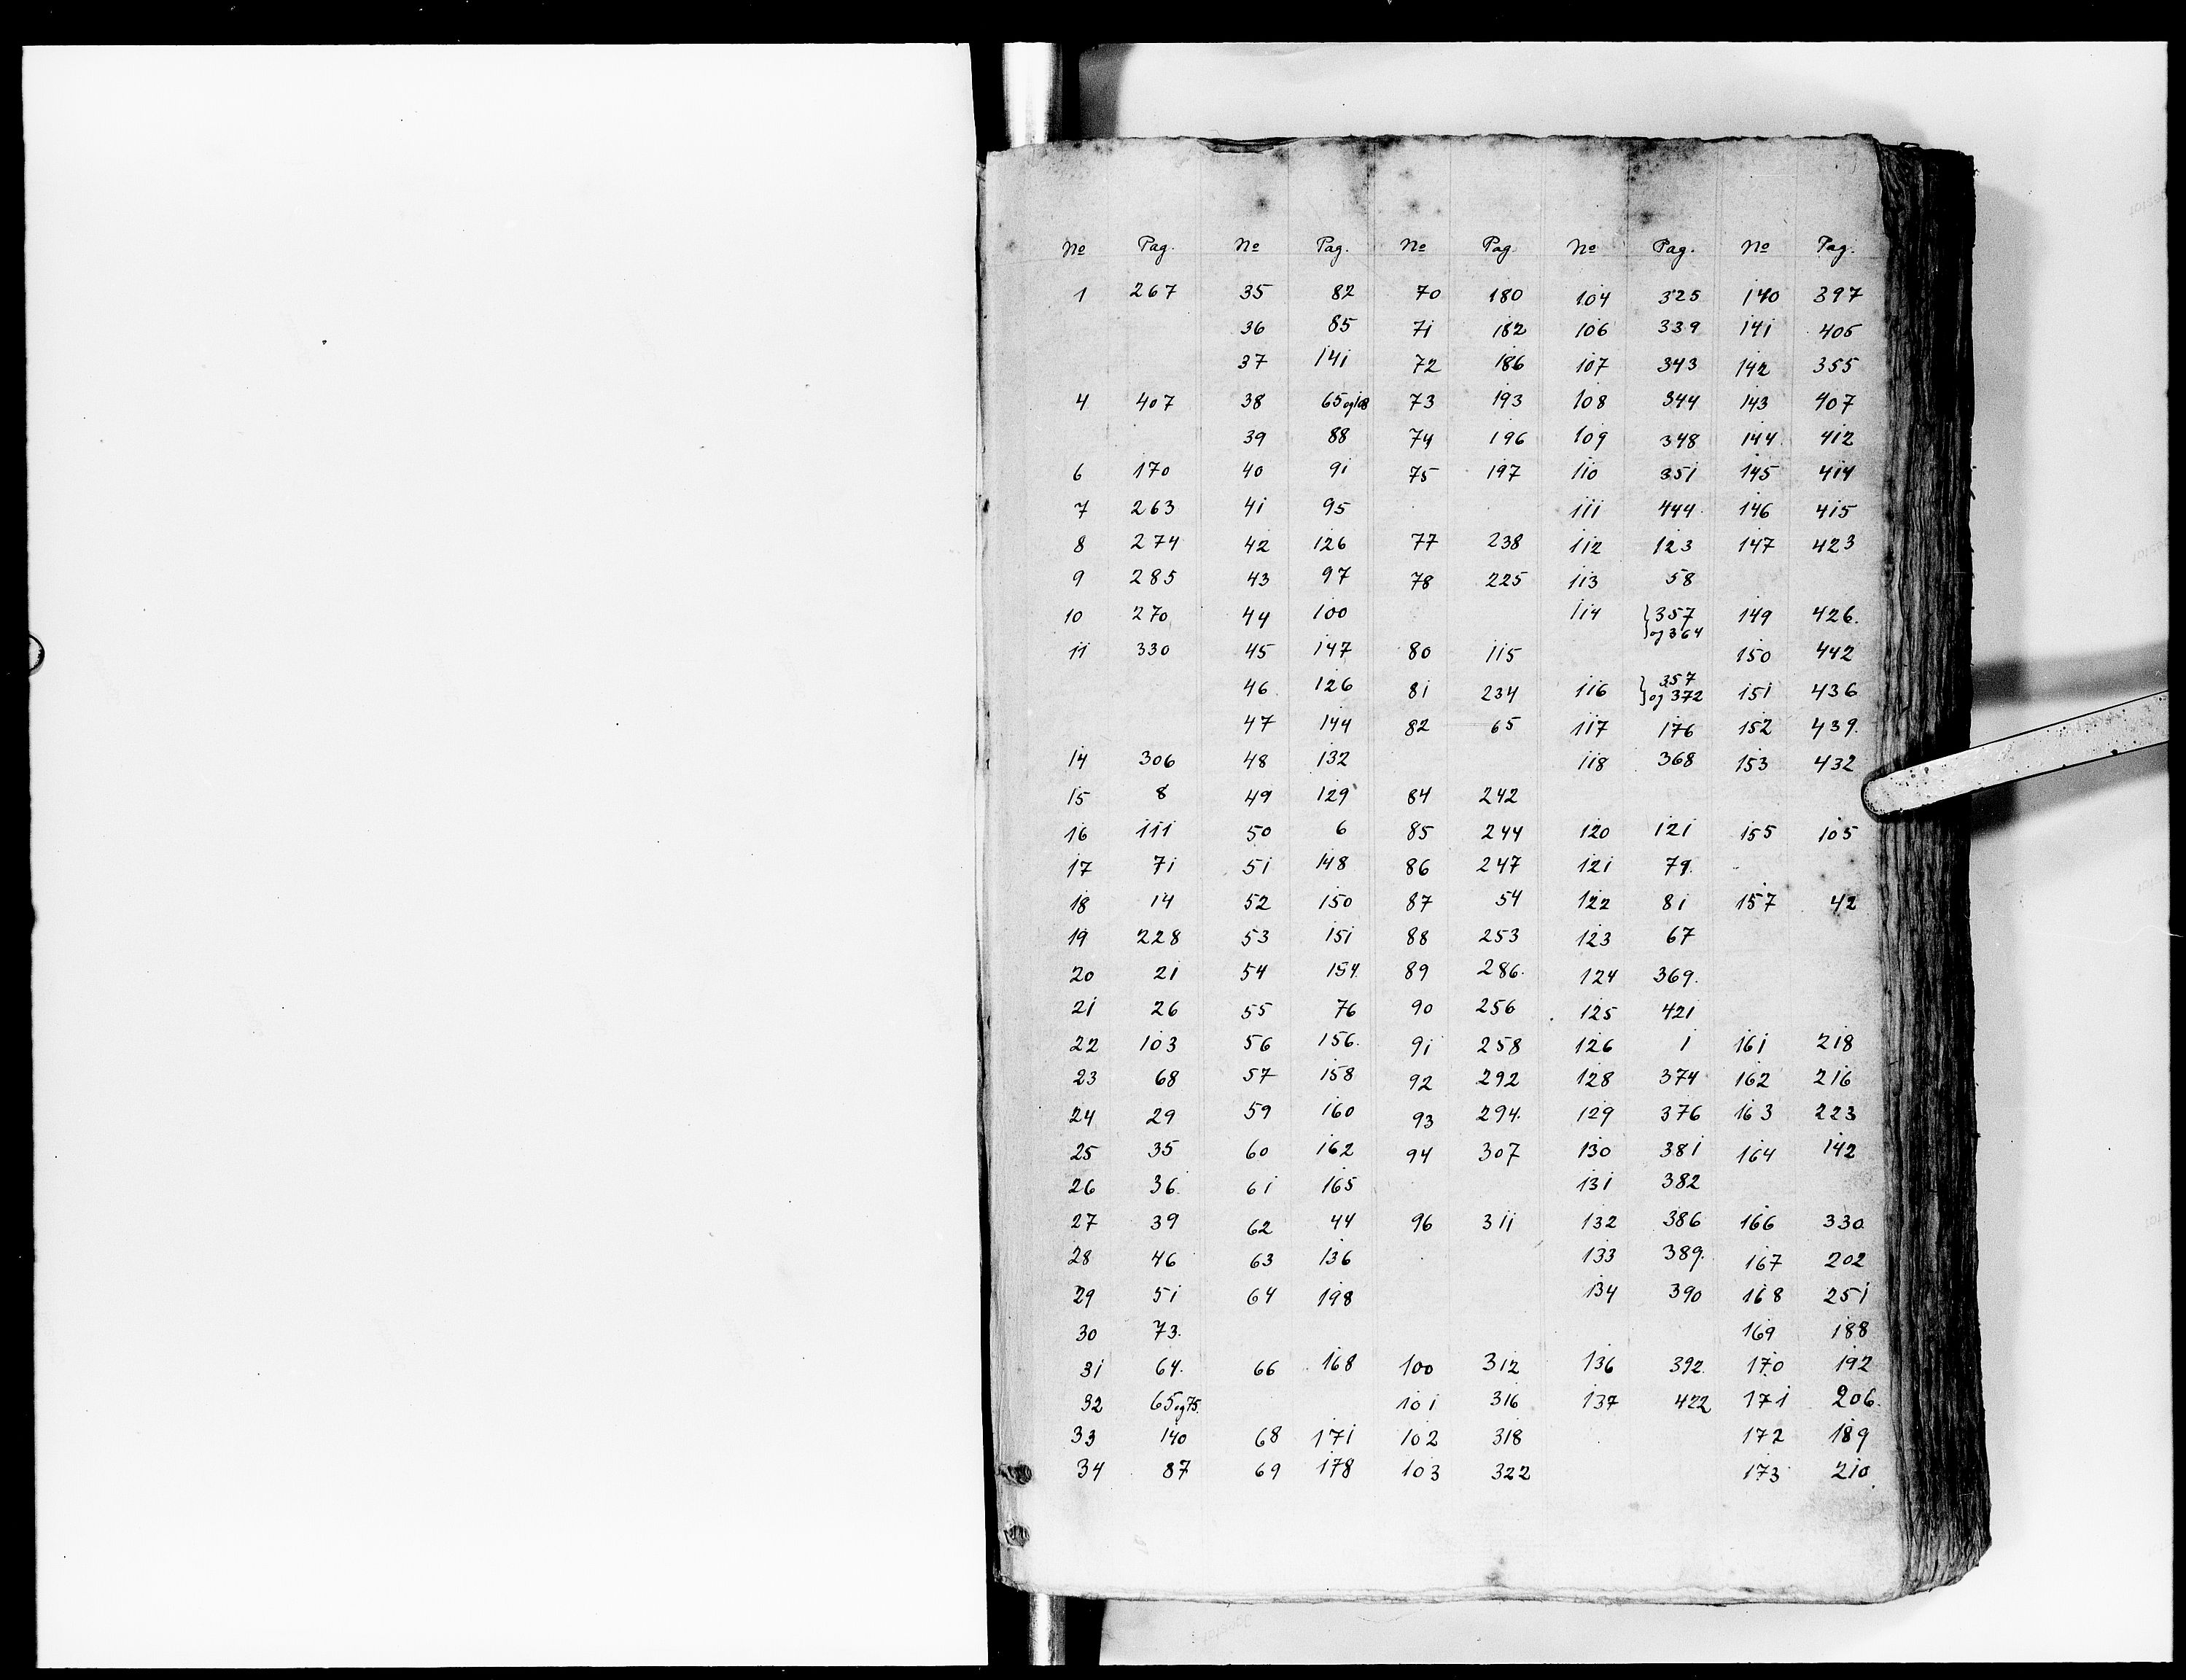 No Pag. No Pag. No Pag. No Pag. No Pag.
1 267 35 82 70 180 104 325 140 397
36 85 71 182 106 339 141 405
37 141 72 186 107 343 142 355
4 407 38 65 og 108 73 193 108 344 143 407
39 88 74 196 109 348 144 412
6 170 40 91 75 197 110 351 145 414
7 263 41 95 111 444 146 415
8 274 42 126 77 238 112 123 147 423
9 285 43 97 78 225 113 58
10 270 44 100 114 357 149 426.
og 364
11 330 45 147 80 115 150 442
46 126 81 234 116 357 151 436
og 372
47 144 82 65 117 176 152 439.
14 306 48 132 118 368 153 432
15 8 49 129 84 242
16 111 50 6 85 244 120 121 155 105
17 71 51 148 86 247 121 79.
18 14 52 150 87 54 122 81 157 42
19 228 53 151 88 253 123 67
20 21 54 154. 89 286. 124 369.
21 26 55 76 90 256 125 421
22 103 56 156. 91 258 126 1 161 218
23 68 57 158 92 292 128 374 162 216
24 29 59 160 93 294. 129 376 163 223
25 35 60 162 94 307 130 381 164 142
26 36. 61 165 131 382
27 39 62 44 96 311 132 386 166 330
28 46 63 136 133 389. 167 202
29 51 64 198 134 390 168 251
30 73. 169 188
31 64. 66 168 100 312 136 392. 170 192
32 65 og 75. 101 316 137 422 171 206.
33 140 68 171 102 318 172 189
34 87 69 178 103 322 173 210